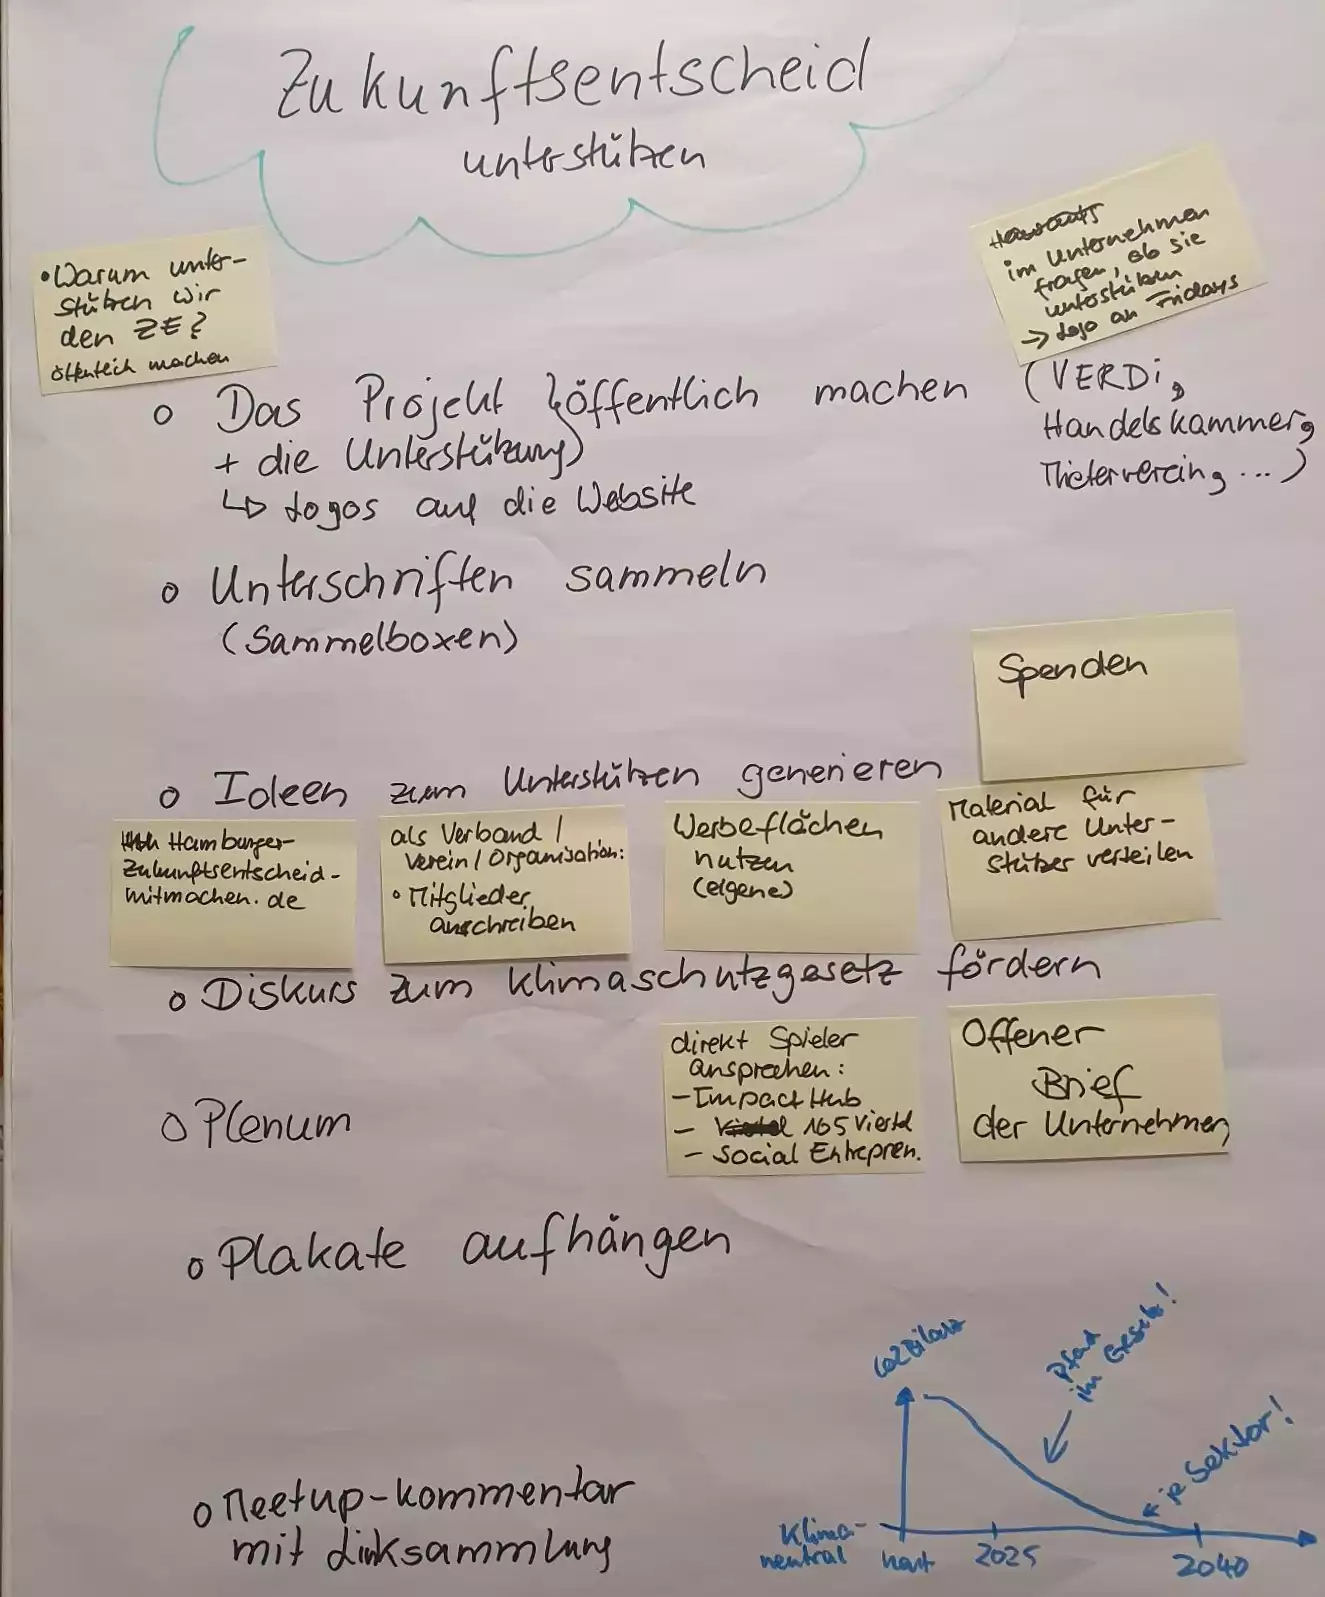 Zukunftsentscheid
unterstützen
• Warum unter-
stützen wir
den ZE?
öffentlich machen
im Unternehmen
fragen, ob sie
unterstützen
→ Logo an Fridays
o Das Projekt öffentlich machen (VERDi,
+ die Unterstützung Handelskammer,
↳ Logos auf die Website Mieterverein, ...)
o Unterschriften sammeln
(Sammelboxen)
Spenden
o Ideen zum Unterstützen generieren
Hamburger-
Zukunftsentscheid-
mitmachen.de
als Verband /
Verein / Organisation:
• Mitglieder
anschreiben
Werbeflächen
nutzen
(eigene)
Material für
andere Unter-
stützer verteilen
o Diskurs zum Klimaschutzgesetz fördern
direkt Spieler
ansprechen:
- Impact Hub
- Viertel 165 Viertel
- Social Entrepren.
Offener
Brief
der Unternehmen
o Plenum
o Plakate aufhängen
CO2 Bilanz
Pfad
im Gesetz!
je Sektor!
Klima-
neutral
2025
2040
o Meetup-kommentar
mit Linksammlung